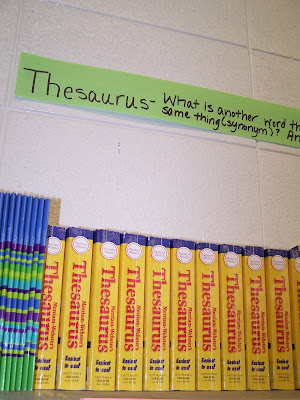 Thesaurus- What is another word th
same thing (synonym)? An
Merriam-Webster's
Thesaurus
Easiest
to use!
Merriam-Webster's
Thesaurus
Easiest
to use!
Merriam-Webster's
Thesaurus
Easiest
to use!
Merriam-Webster's
Thesaurus
Easiest
to use!
Merriam-Webster's
Thesaurus
Easiest
to use!
Merriam-Webster's
Thesaurus
Easiest
to use!
Merriam-Webster's
Thesaurus
Easiest
to use!
Merriam-Webster's
Thesaurus
Easiest
to use!
Merriam-Webster's
Thesaurus
Easiest
to use!
Merriam-Webster's
Thesaurus
Easiest
to use!